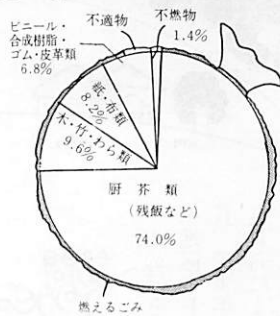 ビニール・
合成樹脂・
ゴム・皮革類
6.8%
不適物
不燃物
1.4%
紙・布類
8.2%
木・竹・わら類
9.6%
厨芥類
(残飯など)
74.0%
燃えるごみ